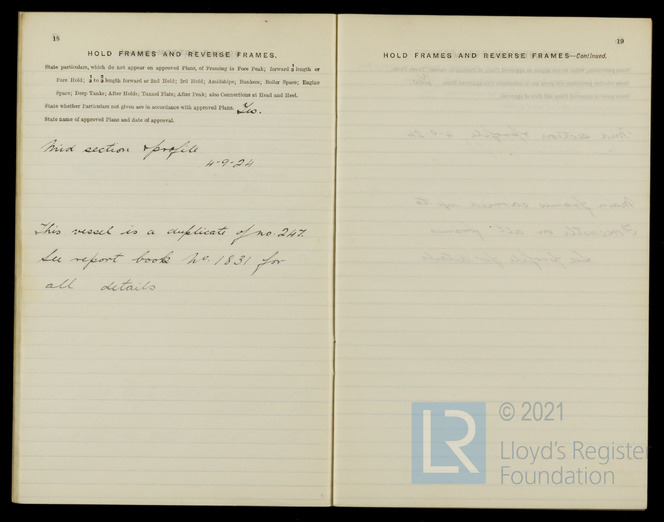 18
HOLD FRAMES AND REVERSE FRAMES.
State particulars, which do not appear on approved Plans, of Framing in Fore Peak; forward ½ length or
Fore Hold; to length forward or 2nd Hold; 3rd Hold; Amidships; Bunkers; Boiler Space; Engine
Space; Deep Tanks; After Holds; Tunnel Flats; After Peak; also Connections at Head and Heel.
State whether Particulars not given are in accordance with approved Plans. Yes.
State name of approved Plans and date of approval.
Mid section & profile
4-9-24
This vessel is a duplicate of no. 247.
See report book No. 1831 for
all details
19
HOLD FRAMES AND REVERSE FRAMES—Continued.
LR
© 2021
Lloyd's Register
Foundation